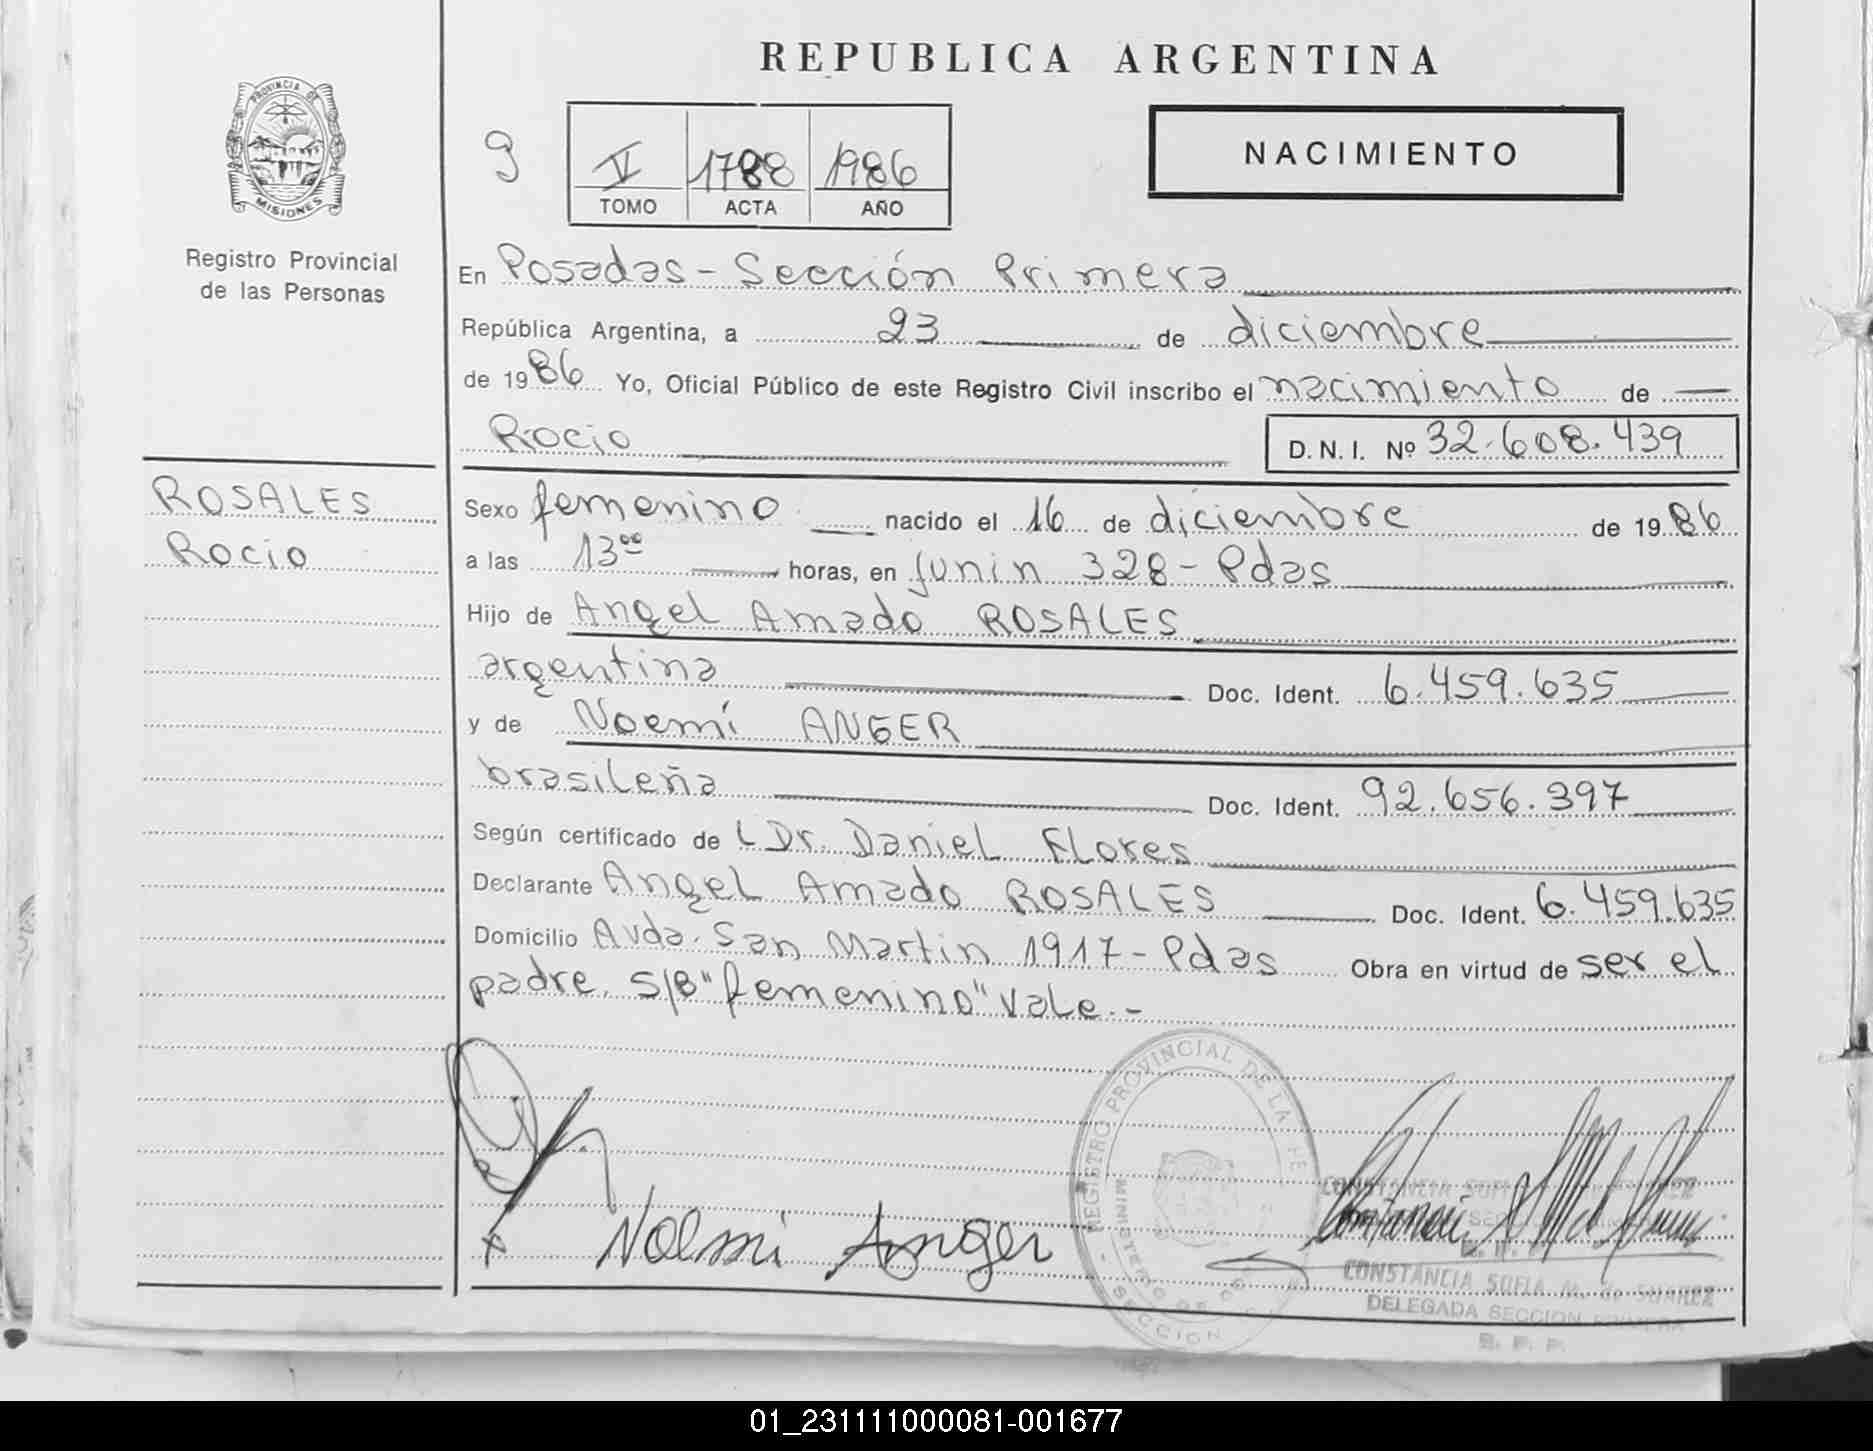 REPUBLICA ARGENTINA
PROVINCIA DE
MISIONES
Registro Provincial
de las Personas
9
V 1788 1986
TOMO ACTA AÑO
NACIMIENTO
En Posadas - Sección Primera
República Argentina, a 23 de diciembre
de 1986 Yo, Oficial Público de este Registro Civil inscribo el nacimiento de
Rocio D.N.I. Nº 32.608.439
ROSALES
Rocio
Sexo femenino nacido el 16 de diciembre de 1986
a las 13⁰⁰ horas, en Junin 328 - Pdas
Hijo de Angel Amado ROSALES
argentina Doc. Ident. 6.459.635
y de Noemí ANGER
brasileña Doc. Ident. 92.656.397
Según certificado de Dr. Daniel Flores
Declarante Angel Amado ROSALES Doc. Ident. 6.459.635
Domicilio Avda. San Martin 1917 - Pdas Obra en virtud de ser el
padre. S/B "femenino" Vale.-
REGISTRO PROVINCIAL DE LA
SECCION
Noemi Anger
CONSTANCIA SOFIA M. de SUAREZ
DELEGADA SECCION PRIMERA
R. P. P.
01_231111000081-001677